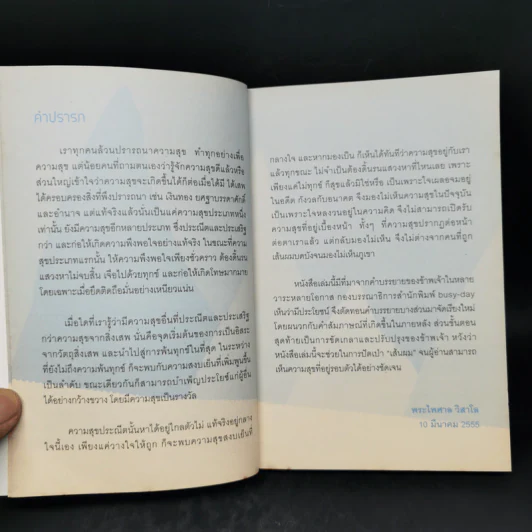 คำปรารภ
เราทุกคนล้วนปรารถนาความสุข ทำทุกอย่างเพื่อ
ความสุข แต่น้อยคนที่ถามตนเองว่ารู้จักความสุขดีแล้วหรือ
ส่วนใหญ่เข้าใจว่าความสุขจะเกิดขึ้นได้ก็ต่อเมื่อได้มี ได้เสพ
ได้ครอบครองสิ่งที่พึงปรารถนา เช่น เงินทอง ยศฐาบรรดาศักดิ์
และอำนาจ แต่แท้จริงแล้วนั่นเป็นแค่ความสุขประเภทหนึ่ง
เท่านั้น ยังมีความสุขอีกหลายประเภท ซึ่งประณีตและประเสริฐ
กว่า และก่อให้เกิดความพึงพอใจอย่างแท้จริง ในขณะที่ความ
สุขประเภทแรกนั้น ให้ความพึงพอใจเพียงชั่วคราว ต้องดิ้นรน
แสวงหาไม่จบสิ้น เจือไปด้วยทุกข์ และก่อให้เกิดโทษมากมาย
โดยเฉพาะเมื่อยึดติดถือมั่นอย่างเหนียวแน่น
เมื่อใดที่เรารู้ว่ามีความสุขอื่นที่ประณีตและประเสริฐ
กว่าความสุขจากสิ่งเสพ นั่นคือจุดเริ่มต้นของการเป็นอิสระ
จากวัตถุสิ่งเสพ และนำไปสู่การพ้นทุกข์ในที่สุด ในระหว่าง
ที่ยังไม่ถึงความพ้นทุกข์ ก็จะพบกับความสงบเย็นที่เพิ่มพูนขึ้น
เป็นลำดับ ขณะเดียวกันก็สามารถบำเพ็ญประโยชน์แก่ผู้อื่น
ได้อย่างกว้างขวาง โดยมีความสุขเป็นรางวัล
ความสุขประณีตนั้นหาได้อยู่ไกลตัวไม่ แท้จริงอยู่กลาง
ใจนี้เอง เพียงแค่วางใจให้ถูก ก็จะพบความสุขสงบเย็นที่
กลางใจ และหากมองเป็น ก็เห็นได้ทันทีว่าความสุขอยู่กับเรา
แล้วทุกขณะ ไม่จำเป็นต้องดิ้นรนแสวงหาที่ไหนเลย เพราะ
เพียงแค่ไม่ทุกข์ ก็สุขแล้วมิใช่หรือ เป็นเพราะใจเผลอจมอยู่
ในอดีต กังวลกับอนาคต จึงมองไม่เห็นความสุขในปัจจุบัน
เป็นเพราะใจหลงวนอยู่ในความคิด จึงไม่สามารถเปิดรับ
ความสุขที่อยู่เบื้องหน้า ทั้งๆ ที่ความสุขปรากฏต่อหน้า
ต่อตาเราแล้ว แต่กลับมองไม่เห็น จึงไม่ต่างจากคนที่ถูก
เส้นผมบดบังจนมองไม่เห็นภูเขา
หนังสือเล่มนี้มีที่มาจากคำบรรยายของข้าพเจ้าในหลาย
วาระหลายโอกาส กองบรรณาธิการสำนักพิมพ์ busy-day
เห็นว่ามีประโยชน์ จึงคัดทอนคำบรรยายบางส่วนมาจัดเรียงใหม่
โดยผนวกกับคำสัมภาษณ์ที่เกิดขึ้นในภายหลัง ส่วนขั้นตอน
สุดท้ายเป็นการขัดเกลาและปรับปรุงของข้าพเจ้า หวังว่า
หนังสือเล่มนี้จะช่วยในการปัดเป่า "เส้นผม" จนผู้อ่านสามารถ
เห็นความสุขที่อยู่รอบตัวได้อย่างชัดเจน
พระไพศาล วิสาโล
10 มีนาคม 2555